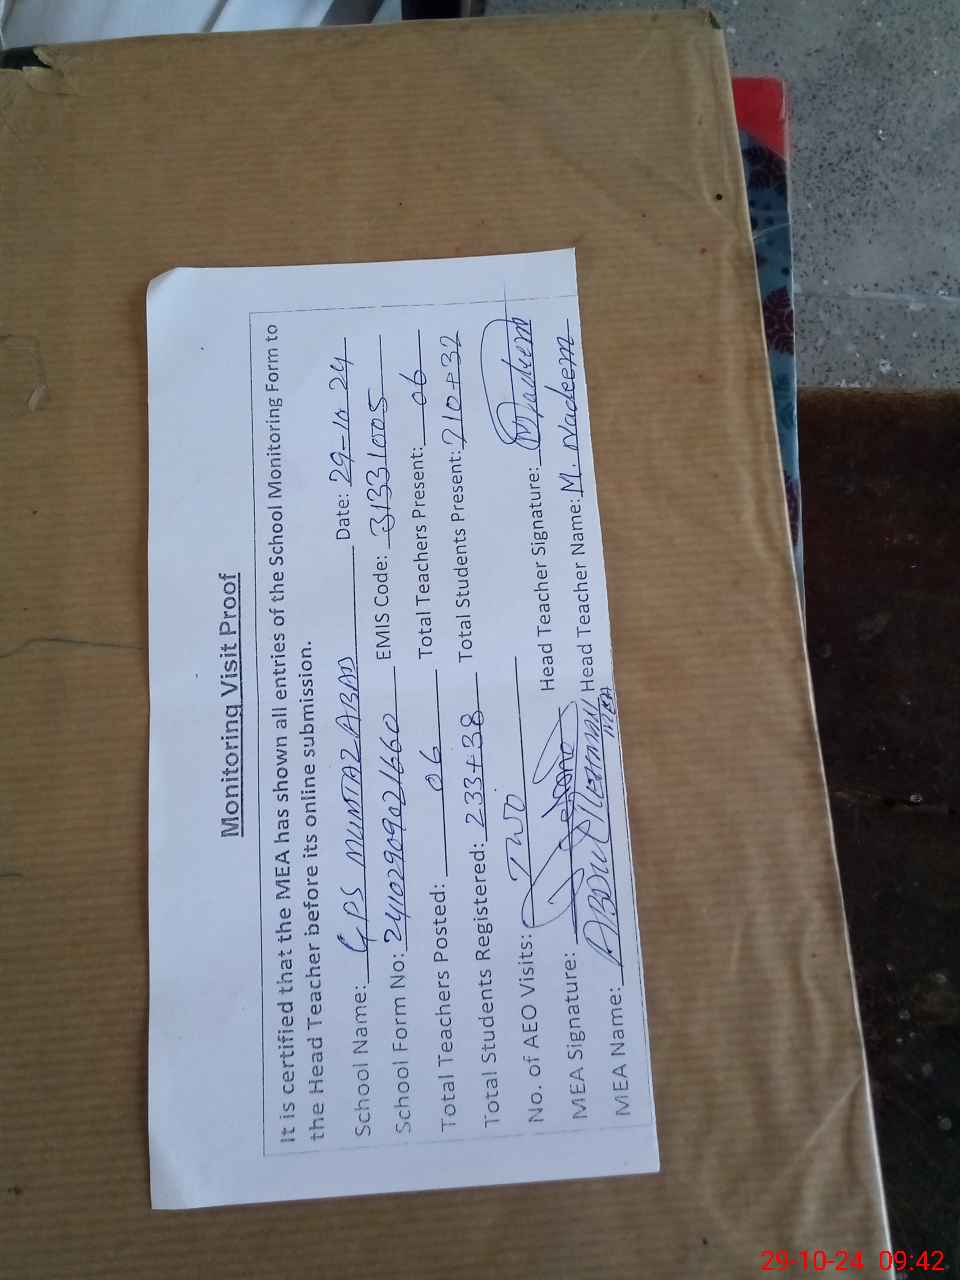 Monitoring Visit Proof
It is certified that the MEA has shown all entries of the School Monitoring Form to
the Head Teacher before its online submission.
School Name: GPS MUMTAZ ABAD Date: 29-10-24
School Form No: 24102909021660 EMIS Code: 31331005
Total Teachers Posted: 06 Total Teachers Present: 06
Total Students Registered: 233+38 Total Students Present: 210+32
No. of AEO Visits: TWO
MEA Signature: Head Teacher Signature: Nadeem
MEA Name: ABDUL REHMAN MEA Head Teacher Name: M. Nadeem
29-10-24 09:42